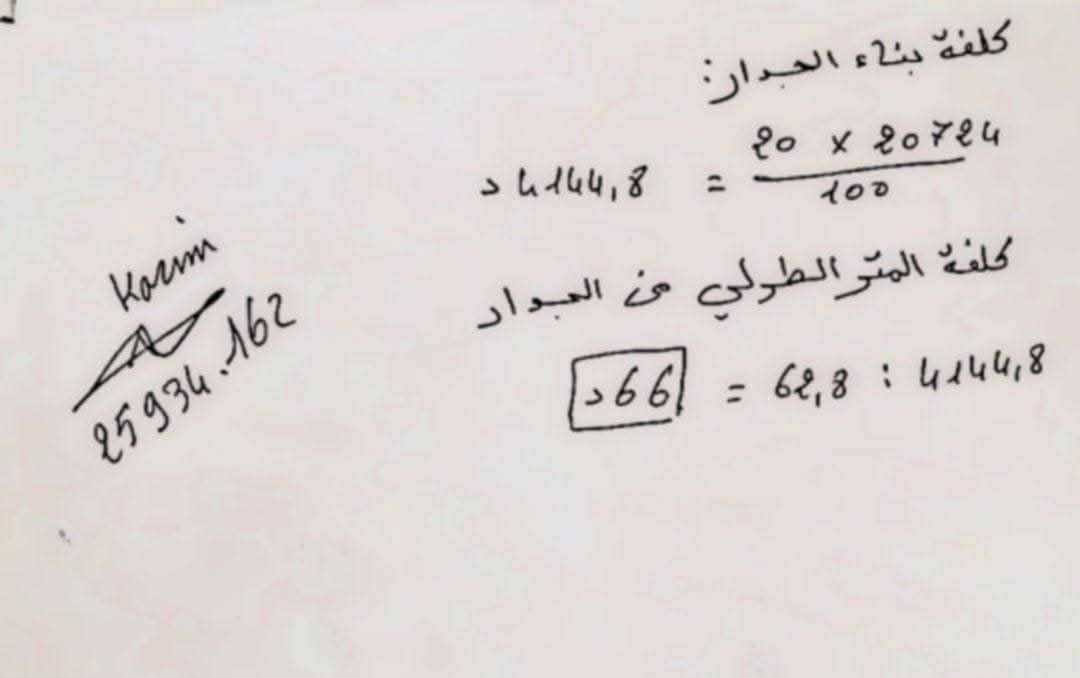 كلفة بناء الجدار:
20 × 20724
100
= 4144,8 د
كلفة المتر الطولي من الجدار
4144,8 : 62,8 = 66 د
Karim
25934.162